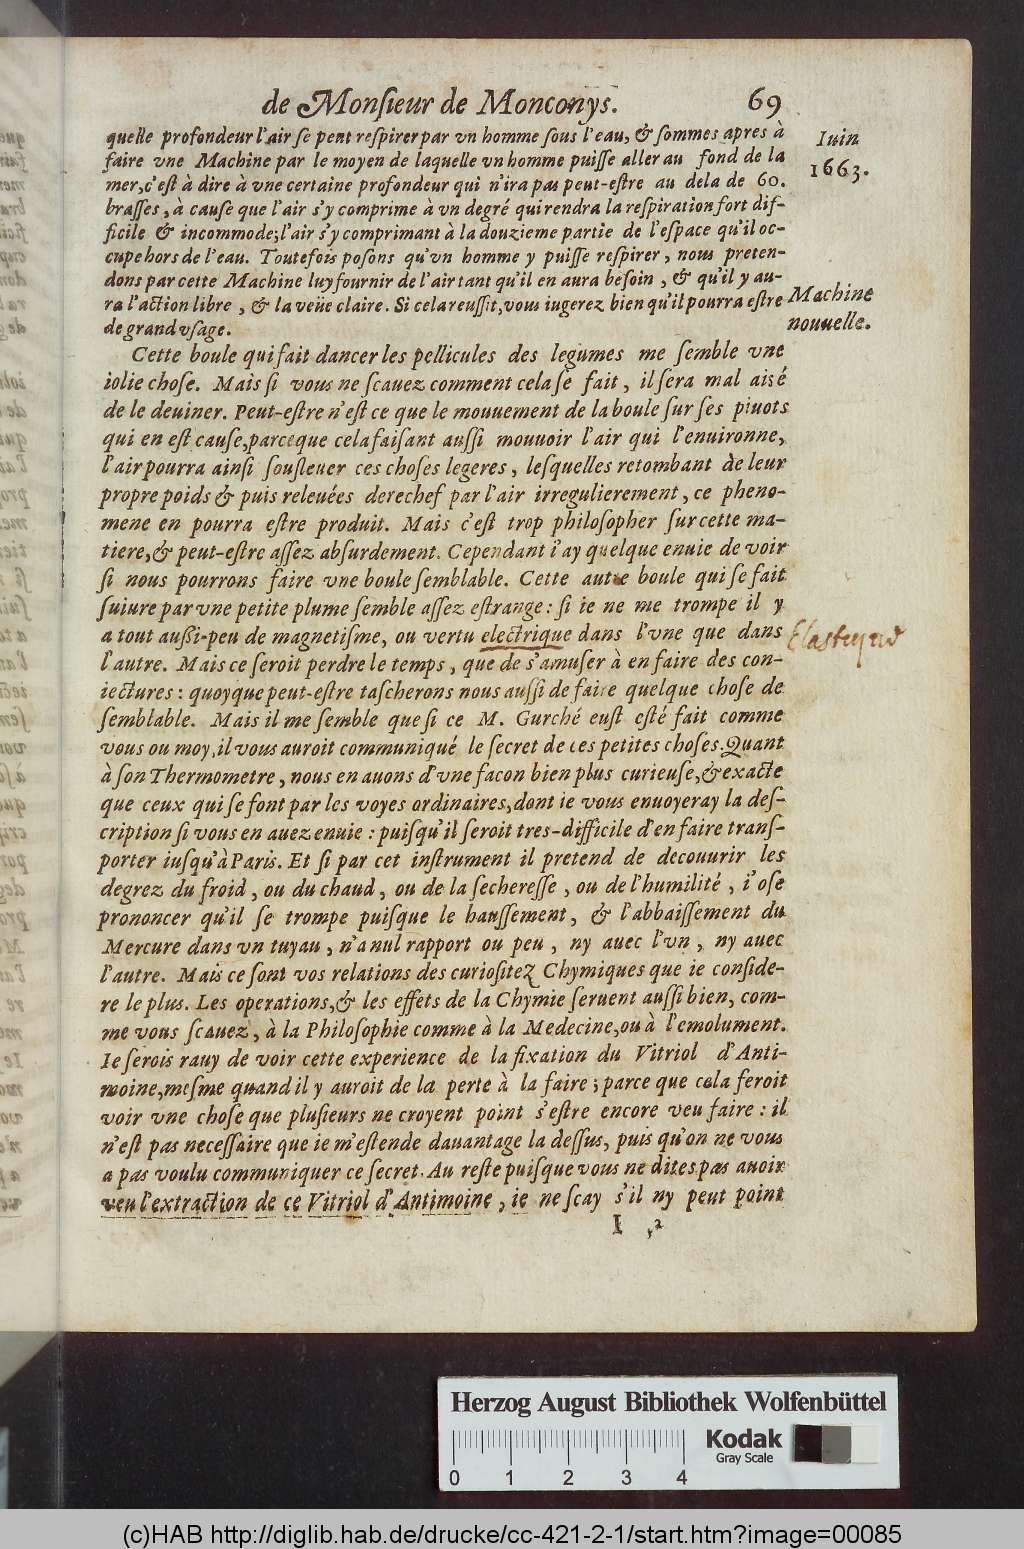 de Monſieur de Monconys. 69
quelle profondeur l'air ſe peut reſpirer par vn homme ſous l'eau, & ſommes apres à
Iuin
1663.
faire vne Machine par le moyen de laquelle vn homme puiſſe aller au fond de la
mer, c'eſt à dire à vne certaine profondeur qui n'ira pas peut-eſtre au dela de 60.
braſſes, à cauſe que l'air s'y comprime à vn degré qui rendra la reſpiration fort dif-
ficile & incommode; l'air s'y comprimant à la douzieme partie de l'eſpace qu'il oc-
cupe hors de l'eau. Toutefois poſons qu'vn homme y puiſſe reſpirer, nous preten-
dons par cette Machine luy fournir de l'air tant qu'il en aura beſoin, & qu'il y au-
ra l'action libre, & la veüe claire. Si cela reuſſit, vous iugerez bien qu'il pourra eſtre
Machine
nouuelle.
de grand vſage.
Cette boule qui fait dancer les pellicules des legumes me ſemble vne
iolie choſe. Mais ſi vous ne ſcauez comment cela ſe fait, il ſera mal aisé
de le deuiner. Peut-eſtre n'eſt ce que le mouuement de la boule ſur ſes piuots
qui en eſt cauſe, parceque cela faiſant auſſi mouuoir l'air qui l'enuironne,
l'air pourra ainſi ſouſleuer ces choſes legeres, leſquelles retombant de leur
propre poids & puis releuées derechef par l'air irregulierement, ce pheno-
mene en pourra eſtre produit. Mais c'eſt trop philoſopher ſur cette ma-
tiere, & peut-eſtre aſſez abſurdement. Cependant i'ay quelque enuie de voir
ſi nous pourrons faire vne boule ſemblable. Cette autre boule qui ſe fait
ſuiure par vne petite plume ſemble aſſez eſtrange: ſi ie ne me trompe il y
a tout außi-peu de magnetiſme, ou vertu electrique dans l'vne que dans
l'autre. Mais ce ſeroit perdre le temps, que de s'amuſer à en faire des con-
iectures: quoyque peut-eſtre taſcherons nous auſſi de faire quelque choſe de
ſemblable. Mais il me ſemble que ſi ce M. Gurché euſt eſté fait comme
vous ou moy, il vous auroit communiqué le ſecret de ces petites choſes. Quant
à ſon Thermometre, nous en auons d'vne facon bien plus curieuſe, & exacte
que ceux qui ſe font par les voyes ordinaires, dont ie vous enuoyeray la deſ-
cription ſi vous en auez enuie: puiſqu'il ſeroit tres-difficile d'en faire tranſ-
porter iuſqu'à Paris. Et ſi par cet inſtrument il pretend de decouurir les
degrez du froid, ou du chaud, ou de la ſechereſſe, ou de l'humilité, i'oſe
prononcer qu'il ſe trompe puiſque le hauſſement, & l'abbaiſſement du
Mercure dans vn tuyau, n'a nul rapport ou peu, ny auec l'vn, ny auec
l'autre. Mais ce ſont vos relations des curioſitez Chymiques que ie conſide-
re le plus. Les operations, & les effets de la Chymie ſeruent auſſi bien, com-
me vous ſcauez, à la Philoſophie comme à la Medecine, ou à l'emolument.
Ie ſerois rauy de voir cette experience de la fixation du Vitriol d'Anti-
moine, meſme quand il y auroit de la perte à la faire; parce que cela feroit
voir vne choſe que pluſieurs ne croyent point s'eſtre encore veu faire: il
n'eſt pas neceſſaire que ie m'eſtende dauantage la deſſus, puis qu'on ne vous
a pas voulu communiquer ce ſecret. Au reſte puiſque vous ne dites pas auoir
veu l'extraction de ce Vitriol d'Antimoine, ie ne ſcay s'il ny peut point
I 2
Herzog August Bibliothek Wolfenbüttel
0 1 2 3 4
Kodak
Gray Scale
(c)HAB http://diglib.hab.de/drucke/cc-421-2-1/start.htm?image=00085